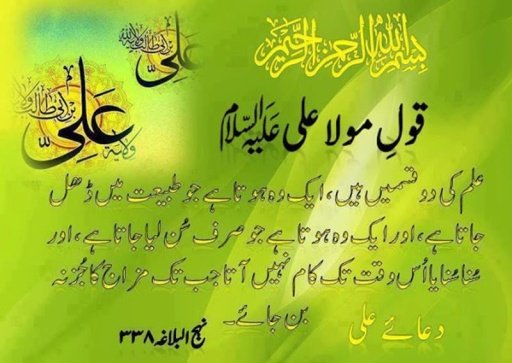 بسم اللہ الرحمن الرحیم
علی بن ابی طالب ولایۃ
علی بن ابی طالب ولایۃ
قولِ مولا علی عَلَیہِ السَّلام
علم کی دو قسمیں ہیں، ایک وہ ہوتا ہے جو طبیعت میں ڈھل
جاتا ہے، اور ایک وہ ہوتا ہے جو صرف سُن لیا جاتا ہے، اور
سُنا سُنایا اُس وقت تک کام نہیں آتا جب تک مزاج کا جُز نہ
بن جائے۔
دعائے علی
نہج البلاغہ ۳۳۸